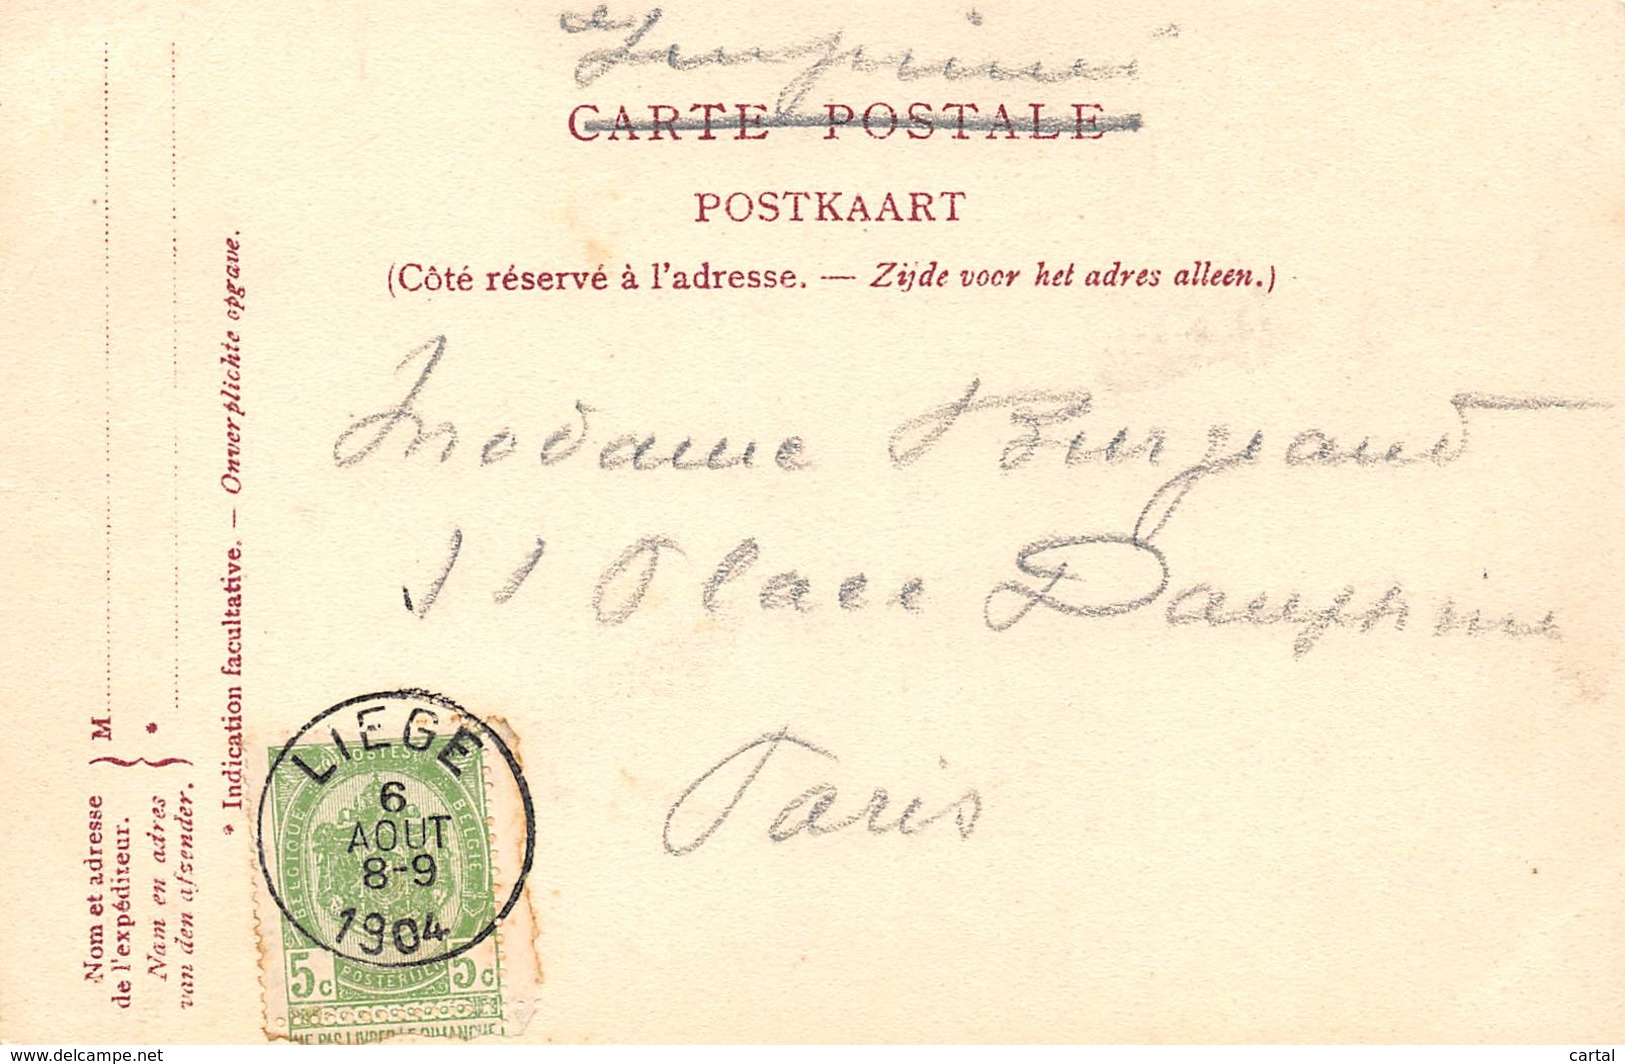 Imprimé
CARTE POSTALE
POSTKAART
(Côté réservé à l'adresse. — Zijde voor het adres alleen.)
Madame Burgeaud
11 Place Dauphine
Paris
M
*
Nom et adresse
de l'expéditeur.
Nam en adres
van den afzender.
* Indication facultative. — Onverplichte opgave.
LIEGE
6
AOUT
8-9
1904
POSTES
BELGIQUE
BELGIE
5c
POSTERIJEN
5c
NE PAS LIVRER LE DIMANCHE
delcampe.net
cartal